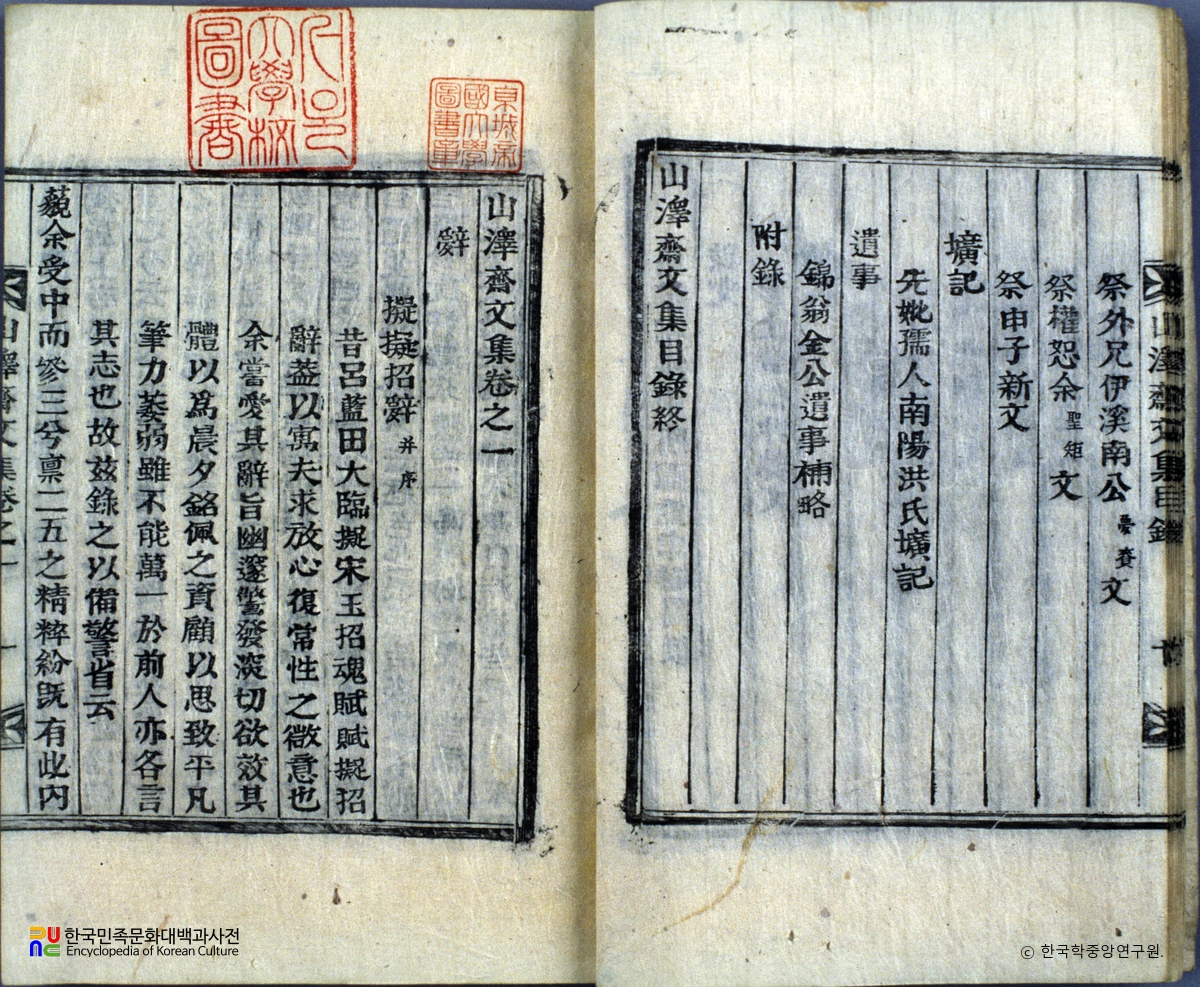 祭外兄伊溪南公夢賚文
祭權恕余聖矩文
祭申子新文
壙記
先妣孺人南陽洪氏壙記
遺事
錦翁金公遺事補略
附錄
山澤齋文集目錄終
山澤齋文集目錄
山澤齋文集卷之一
辭
擬擬招辭并序
昔呂藍田大臨擬宋玉招魂賦賦擬招
辭盖以寓夫求放心復常性之微意也
余嘗愛其辭旨幽邃警發深切欲效其
體以爲晨夕銘佩之資顧以思致平凡
筆力萎弱雖不能萬一於前人亦各言
其志也故玆錄之以備警省云
藐余受中而參三兮禀二五之精粹紛旣有此內
山澤齋文集卷之一
一
大學校
圖書
東城帝
國大學
圖書章
한국민족문화대백과사전
Encyclopedia of Korean Culture
© 한국학중앙연구원.